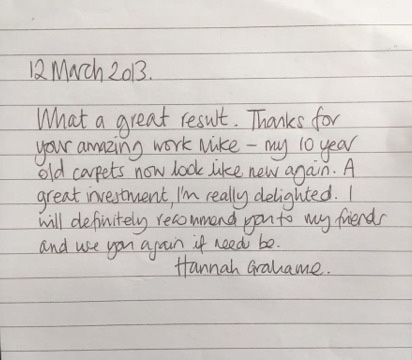 12 March 2013.
What a great result. Thanks for
your amazing work Mike – my 10 year
old carpets now look like new again. A
great investment, I'm really delighted. I
will definitely recommend you to my friends
and use you again if need be.
Hannah Grahame.